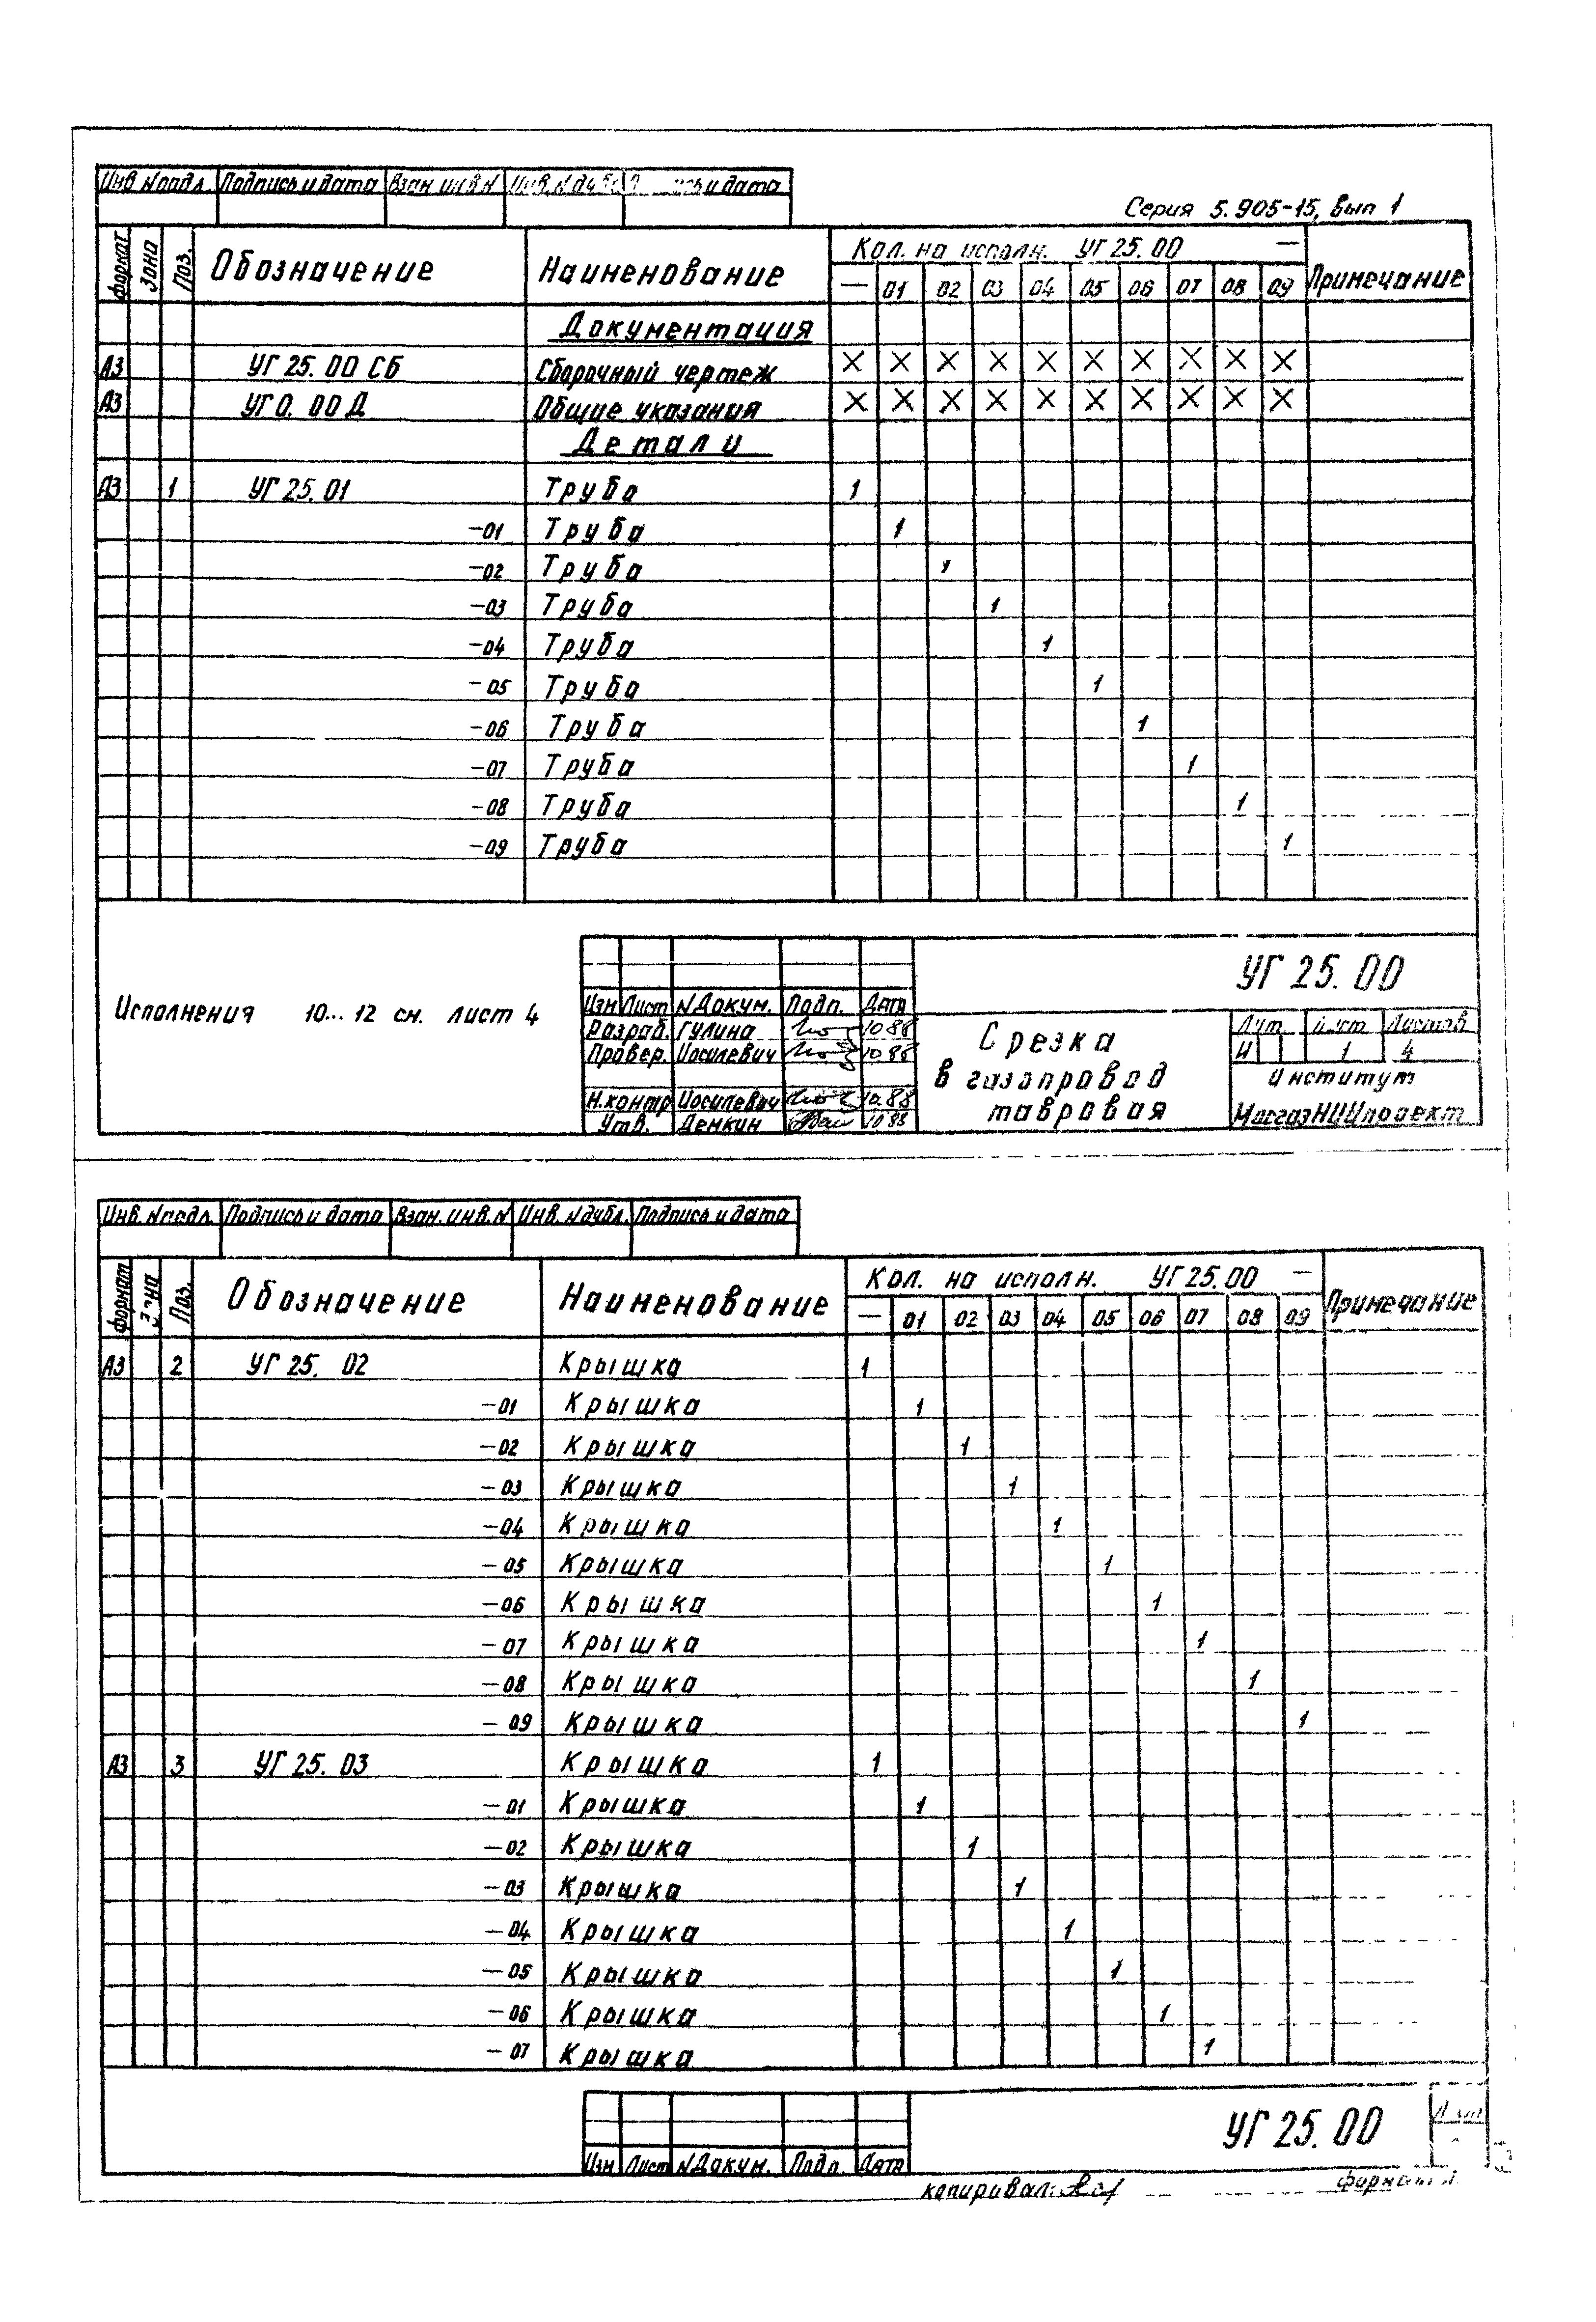 Инв. N подл. Подпись и дата Взам. инв. N Инв. N дубл. и дата
Серия 5.905-15, вып 1
Формат Зона Поз. Обозначение Наименование Кол. на исполн. УГ 25.00 — Примечание
— 01 02 03 04 05 06 07 08 09
Документация
А3 УГ 25.00 СБ Сборочный чертеж X X X X X X X X X X
А3 УГ 0.00 Д Общие указания X X X X X X X X X X
Детали
А3 1 УГ 25.01 Труба 1
-01 Труба 1
-02 Труба 1
-03 Труба 1
-04 Труба 1
-05 Труба 1
-06 Труба 1
-07 Труба 1
-08 Труба 1
-09 Труба 1
Исполнения 10... 12 см. лист 4
УГ 25.00
Изм Лист N Докум. Подп. Дата
Разраб. Гулина 10.88
Провер. Иосилевич 10.88
Н.контр Иосилевич 10.88
Утв. Демкин 10.88
Срезка
в газопровод
тавровая
Лит. Лист Листов
И 1 4
Институт
МосгазНИИпроект
Инв. N подл. Подпись и дата Взам. инв. N Инв. N дубл. Подпись и дата
Формат Зона Поз. Обозначение Наименование Кол. на исполн. УГ 25.00 — Примечание
— 01 02 03 04 05 06 07 08 09
А3 2 УГ 25.02 Крышка 1
-01 Крышка 1
-02 Крышка 1
-03 Крышка 1
-04 Крышка 1
-05 Крышка 1
-06 Крышка 1
-07 Крышка 1
-08 Крышка 1
-09 Крышка 1
А3 3 УГ 25.03 Крышка 1
-01 Крышка 1
-02 Крышка 1
-03 Крышка 1
-04 Крышка 1
-05 Крышка 1
-06 Крышка 1
-07 Крышка 1
Изм Лист N Докум. Подп. Дата
УГ 25.00
копировал: формат